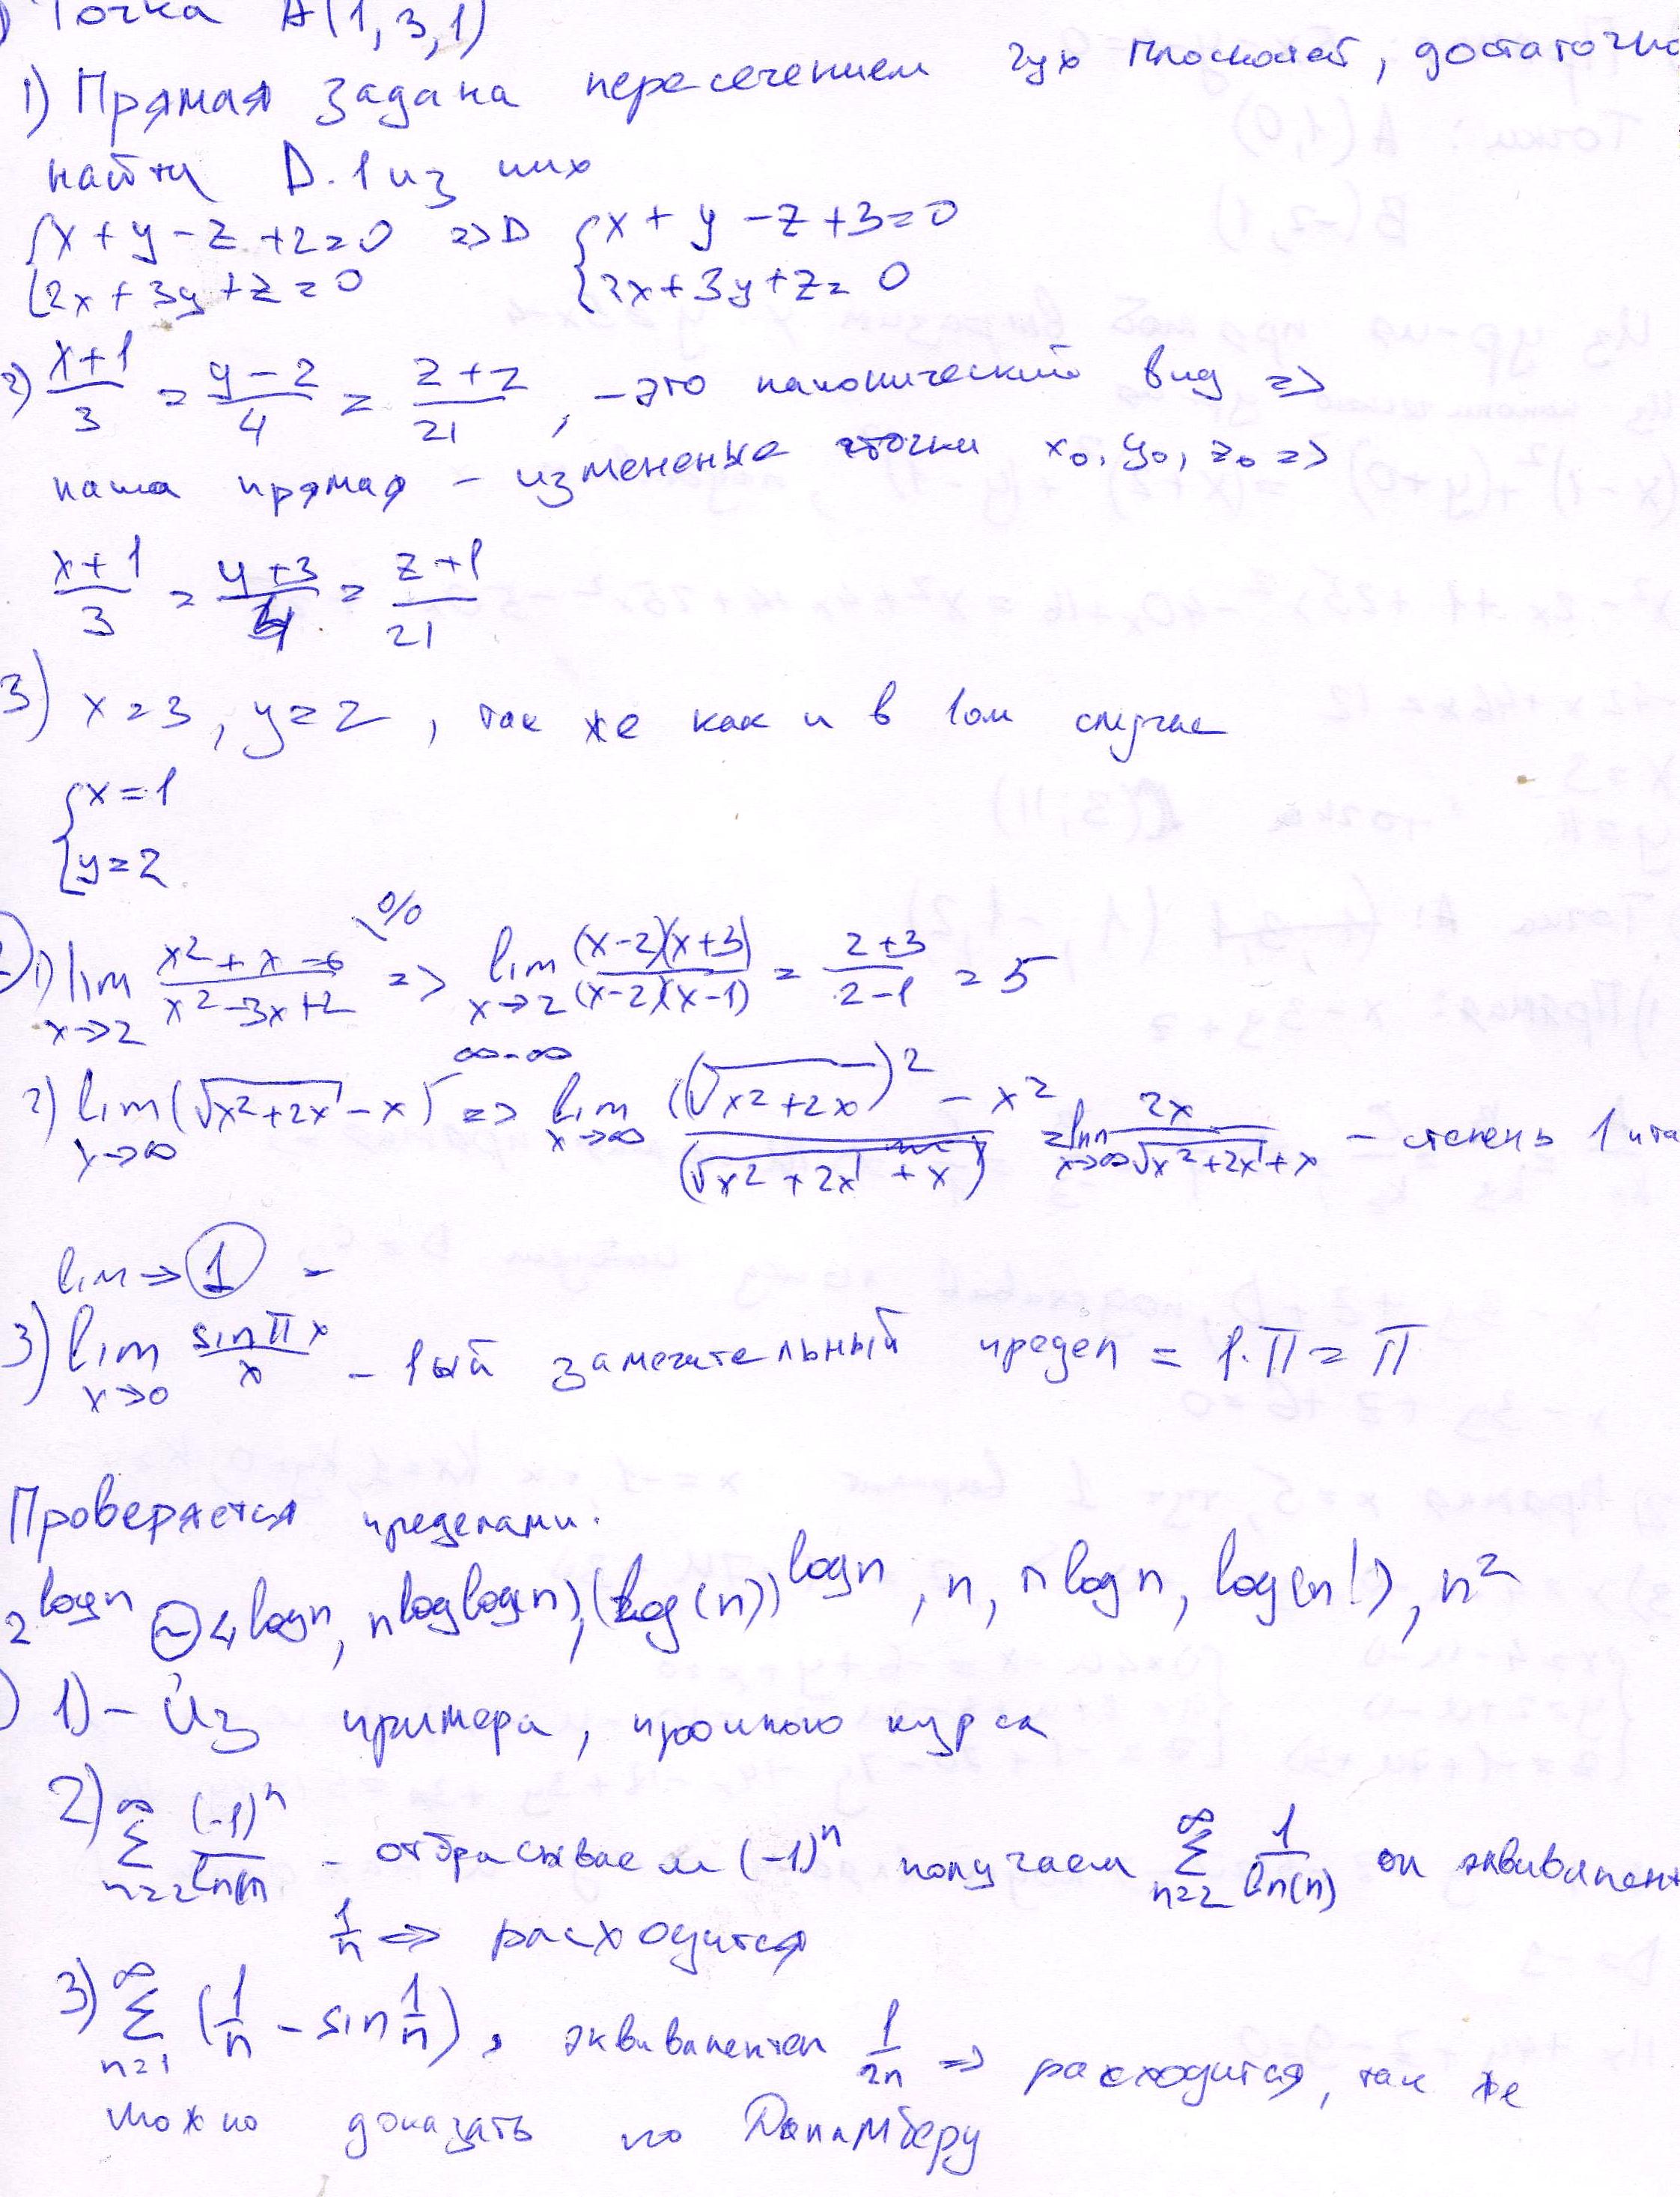 ) Точка A(1,3,1)
1) Прямая задана пересечением 2ух плоскостей, достаточно
найти D. 1 из них
{x + y - z + 2 = 0 => D {x + y - z + 3 = 0
{2x + 3y + z = 0 {2x + 3y + z = 0
2) (x+1)/3 = (y-2)/4 = (z+2)/21, - это канонический вид =>
наша прямая - измененные точки x₀, y₀, z₀ =>
(x+1)/3 = (y+3)/4 = (z+1)/21
3) x = 3, y = 2, так же как и в 1ом случае
{x = 1
{y = 2
1) lim x→2 (x² + x - 6)/(x² - 3x + 2) 0/0 => lim x→2 ((x-2)(x+3))/((x-2)(x-1)) = (2+3)/(2-1) = 5
2) lim x→∞ (√(x²+2x) - x) ∞-∞ => lim x→∞ ((√(x²+2x))² - x²)/(√(x²+2x) + x) = lim x→∞ 2x/(√(x²+2x) + x) - степень 1
lim => 1 -
3) lim x→0 (sin πx)/x - 1ый замечательный предел = 1·π = π
Проверяется пределами.
2^(log n) ~ 4^(log n), n^(log log(n)), (log(n))^(log n), n, n log n, log(n!), n²
) 1) - Из примера, прошлого курса
2) ∑ n=2 ∞ (-1)ⁿ/ln(n) - отбрасываем (-1)ⁿ получаем ∑ n=2 ∞ 1/ln(n) он эквивалент
1/n => расходится
3) ∑ n=1 ∞ (1/n - sin 1/n), эквивалентен 1/2n => расходится, так же
можно доказать по Даламберу